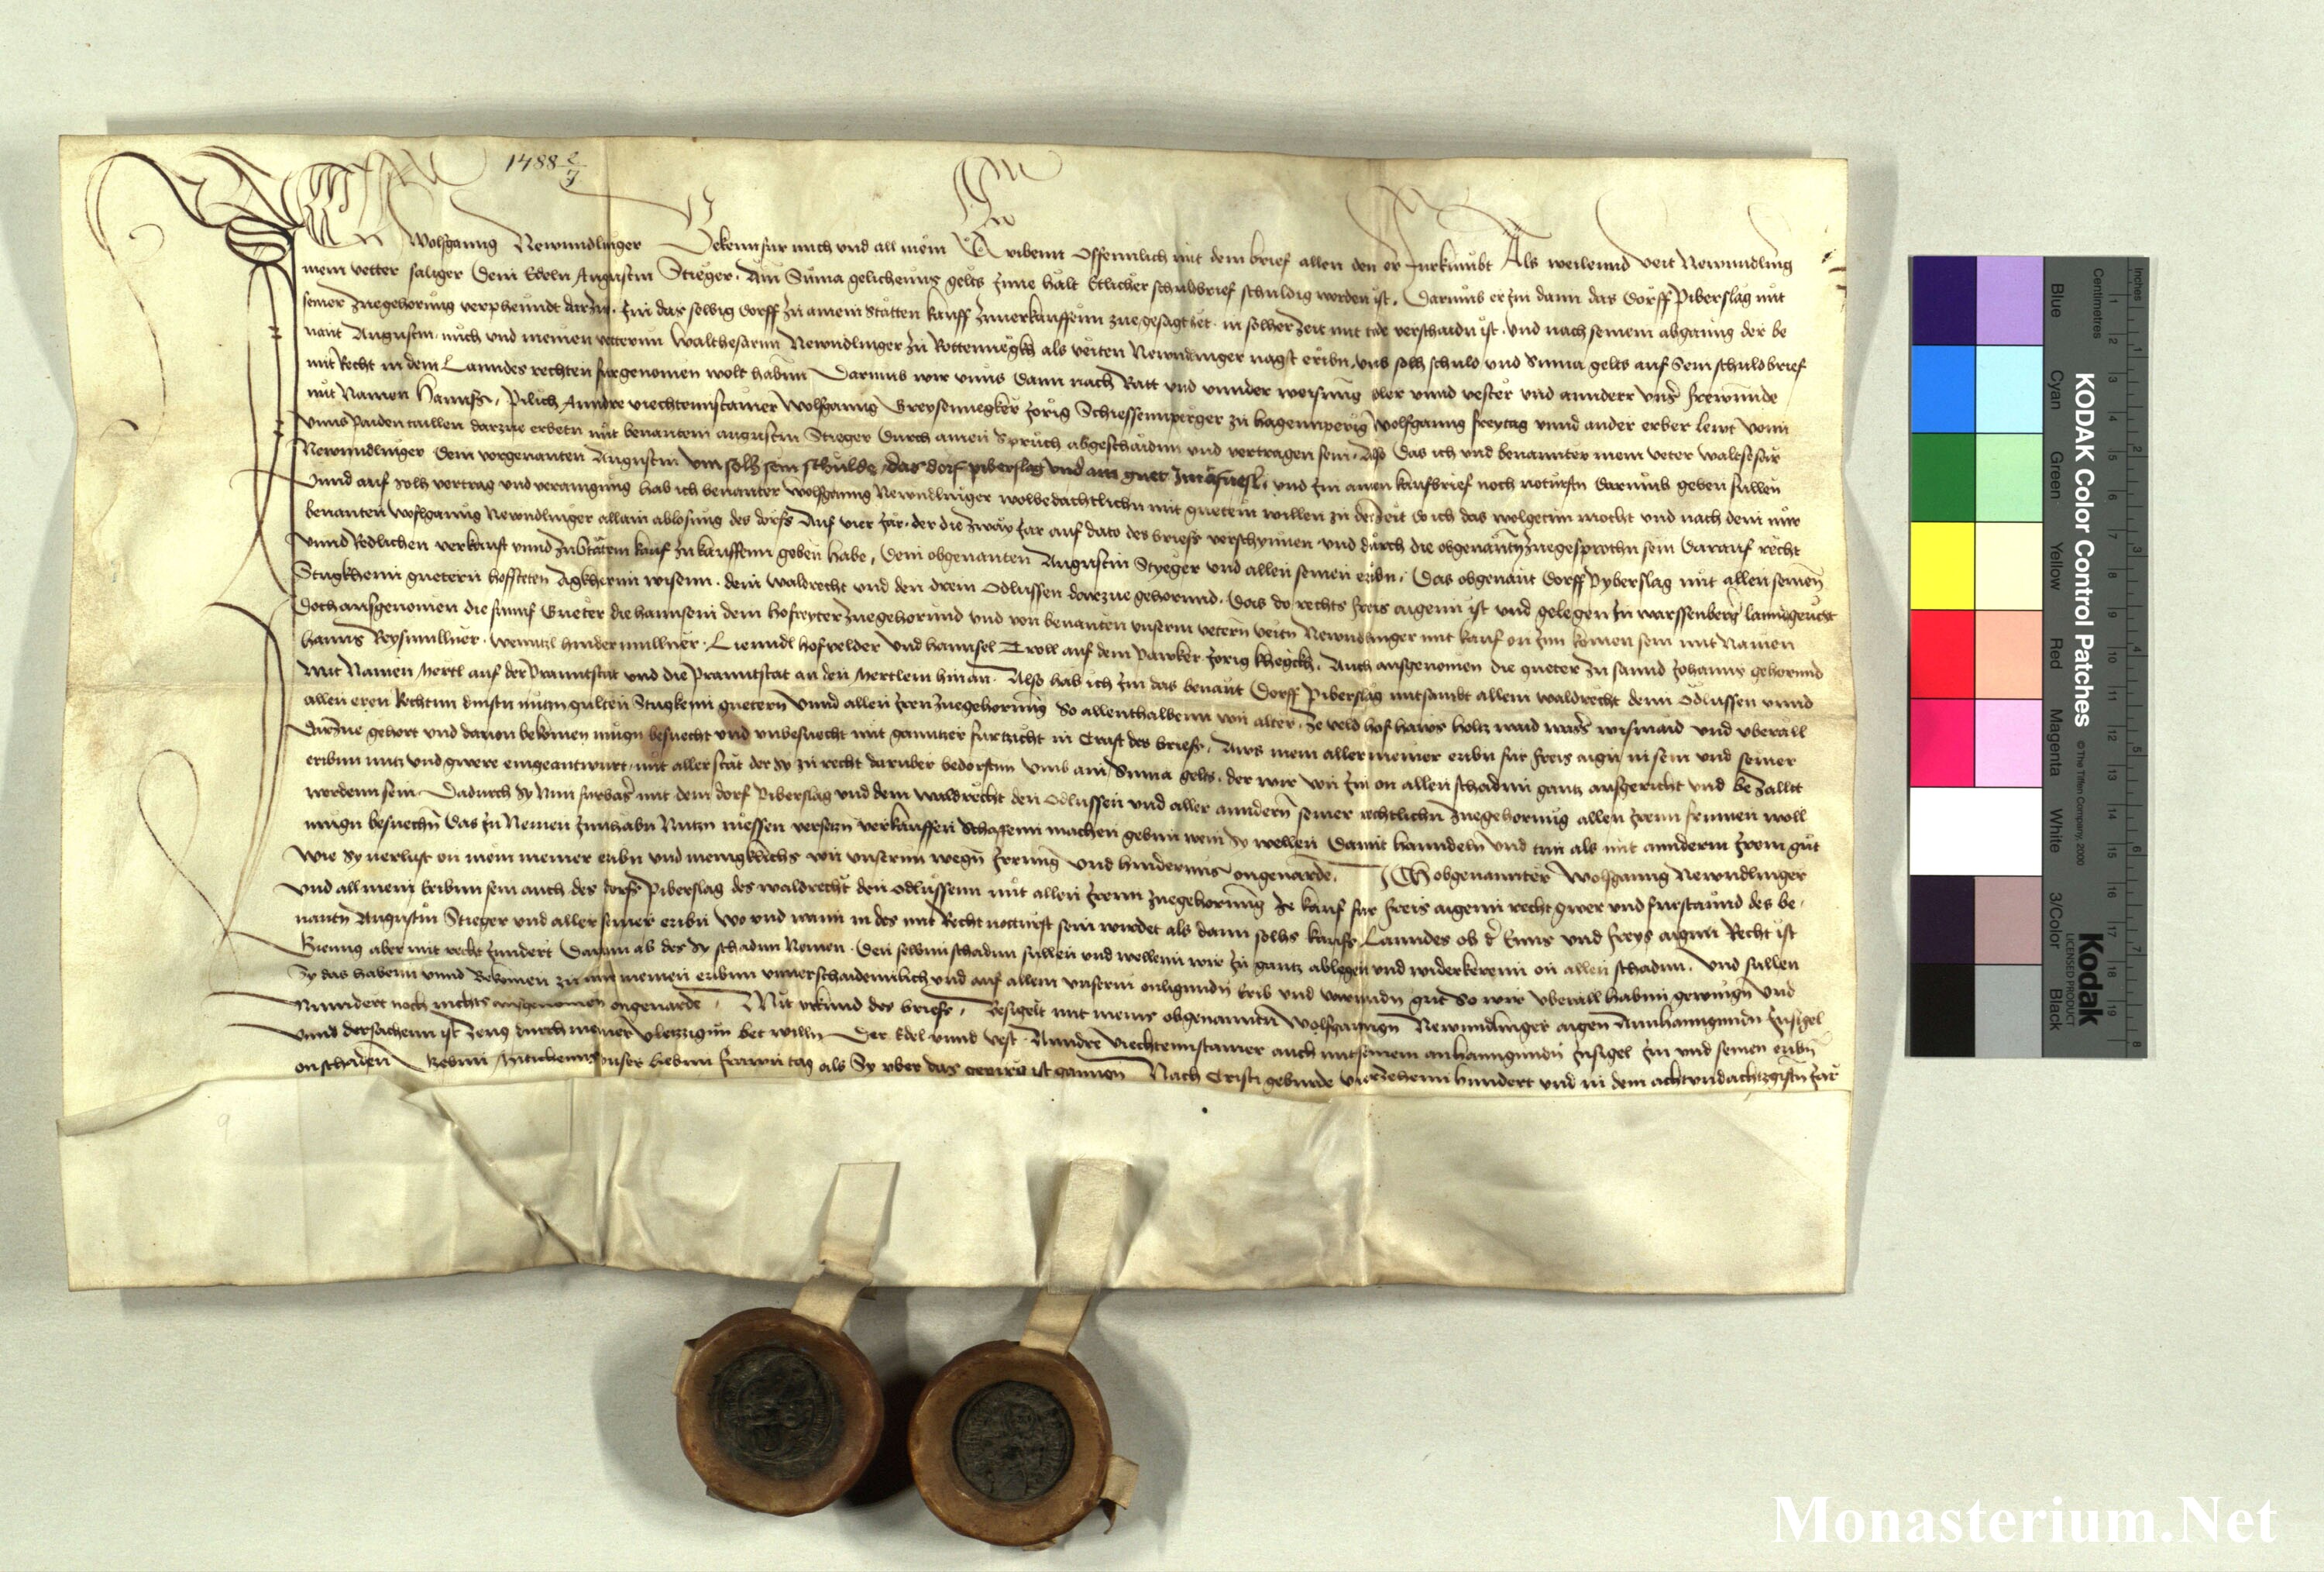 1488 2/7
Ich Wolfganng Newnndlinger Bekenn fur mich vnd all mein Eribenn Offennlich mit dem brief allen den er furkumbt Als weilennd veit Newnndling
mein vetter saliger Dem Edeln Augustin Stieger. Ain Suma gelts Inne halt Etlicher schuldbrief schuldig worden ist. Darumb er Im dann das Dorff Piberslag mit
seiner Zuegehorung verphenndt darzue. Im das selbig dorff zu ainem statten kauff zuuerkauffenn zuegesagt het. in solher Zeit mit tode verschaidn ist. vnd nach seinem abganng der be
nant Augustin. mich vnd meinen vetternn Walthesarnn Newndlinger zu Rottennegkh als veiten Newndlinger nagst eribn, vmb solh schuld vnd Suma gelts auf Sein schuldbrief
mit Recht in dem Lanndes rechten furgenomen wolt habnn Darumb wir vnns dann nach Ratt vnd vnnder weisung edler vnnd vester vnd annderr vnser frewnnde
mit Namen Hannss Pilich Anndre viechtennstainer Wolfganng Greysennegker Jorig Schiessennperger zu hagennperig Wolfganng freytag vnnd ander erber lewt vonn
vnns paiden taillen darzue erbetn mit benantem augustin Stieger Durch ainen Spruch abgeschaidnn vnd vertragen sein. Also Das ich vnd benannter mein veter waltesar
Newnndlinger dem vorgenanten Augustin vmb solh sein schulde, das dorf piberslag vnd ain guet vnd Im ainen kaufbrief noch noturftn darumb geben sullen
Vnnd auf solh vertrag vnd verainigung hab ich benanter Wolfganng Newndlinger wolbedachtlichn mit guetem willen zu der Zeit do ich das wolgetun mocht vnd nach dem mir
benanten Wolfganng Newndlinger allain ablosung des dorfs Auf vier Jar. der die zway Jar auf dato des briefs verschynnen vnd durch die obgenanttn zuegesprochn sein Darauf recht
vnnd Redlichen verkauft vnnd zu Stattem kauf zu kauffenn geben habe, Dem obgenanten Augustin Styeger vnd allen seinen eribn, Das obgenant Dorff Pyberslag mit allen seinen
Stugkhenn guetern hoffsteten Agkhernn wisenn. dem waldrecht vnd den drein Odlussen darzue gehornnd. Das do rechts freis aigenn ist vnd gelegen In warssenberg lanndgericht
Doch ausgenomen die funnf Gueter die hannsen dem hofreyter zuegehornnd vnd von benanten vnserm vetern veitn Newndlinger mit kauf on Inn komen sein mit Namen
hanns Reysmullner. Wenntzl hindermullner. Lienndl hofvelder vnd hannsel Troll auf dem Pawker. Jorig khegkh. Auch ausgenomen die gueter zu sannd Johanns gehornnd
mit Namen hertl auf der Pranntstat vnd die Pranntstat an den hertlein hinan. Also hab ich Im das benant Dorff Piberslag mitsambt allem waldrecht denn Odlussen vnnd
allen eren Rechtnn dinstn nutzn gulten Stugkenn guetern vnnd allen Iren zuegehornng So allenthalbenn von alter. Ze veld hof haws holtz waid wasser wismad vnd vberall
darzue gehort vnd dauon bekomen mugn besuecht vnd vnbesuecht mit gantzer furtzicht in Craft des briefs. Aws mein aller meiner eribn fur freis aign in sein vnd seiner
eribnn nutz vnd gwere eingeantwurt. mit aller stat der sy zu recht daruber bedorftnn vmb ain Suma gelts. der wir von Im on allen schadnn gantz ausgericht vnd betzallt
wordenn sein. Dadurch sy Nun furbass mit dem dorf Piberslag vnd dem waldrecht den Odlussen vnd aller anndern seiner rechtlichn zuegehorung allen Irenn frumen woll
mugn besuechn Das Zu Nemen Innhabn Nutzn niessen versetzn verkauffen Schaffenn machen gebnn wem Sy wellen Damit hanndeln vnd tun als mit annderm Irem gut
Wie Sy verlust on mein meiner eribn vnd menigklichs von vnsernn wegn Irrung vnd hindernus ongeuarde. Ich obgenannter Wolfganng Newndlinger
vnd all mein Eribnn sein auch des dorfs Piberslag des waldrecht den odlussenn mit allen Irenn zuegehorung Ir kauf fur freis aigenn recht gwer vnd furstannd des be
nantn Augustin Stieger vnd aller seiner eribn wo vnd wann in des mit Recht notturft sein wirdet als dann solhs kaufs Lanndes ob der Enns vnd freys aignn Recht ist
Gienng aber mit recht Daran ab des Sy schadnn Nemen. Den selbnn schadnn sullen vnd wellenn wir In gantz ablegen vnd widerkerenn on allen schadnn. vnd sullen
Sy das habenn vnnd Bekomen zu mir meinen eribnn vnuerschaidennlich vnd auf allem vnserm onligundn Erib vnd varundn gut So wir vberall habnn gewingn vnd
Nunndert noch nichts ausgenomen ongeuarde. Mit vrkund des briefs, Besigelt mit meins obgenanntn Wolfganngn Newnndlinger aigen Annhanngundn Insigel
vnnd dersachenn ist Zeug durch meiner vleitzignn bet willn Der Edel vnnd vest Anndre viechtennstainer auch mit seinem anhanngundn Insigel Im vnd seinen eribn
on schaden Gebnn Mitichenn vnser liebnn frawn tag als Sy vber das gepirg ist ganngen Nach Cristi geburde viertzehenn hundert vnd in dem achtvndachtzgistn Jar
Monasterium.Net
KODAK Color Control Patches
© The Tiffen Company, 2000
Kodak
LICENSED PRODUCT
Blue Cyan Green Yellow Red Magenta White 3/Color Black
Inches
Centimetres